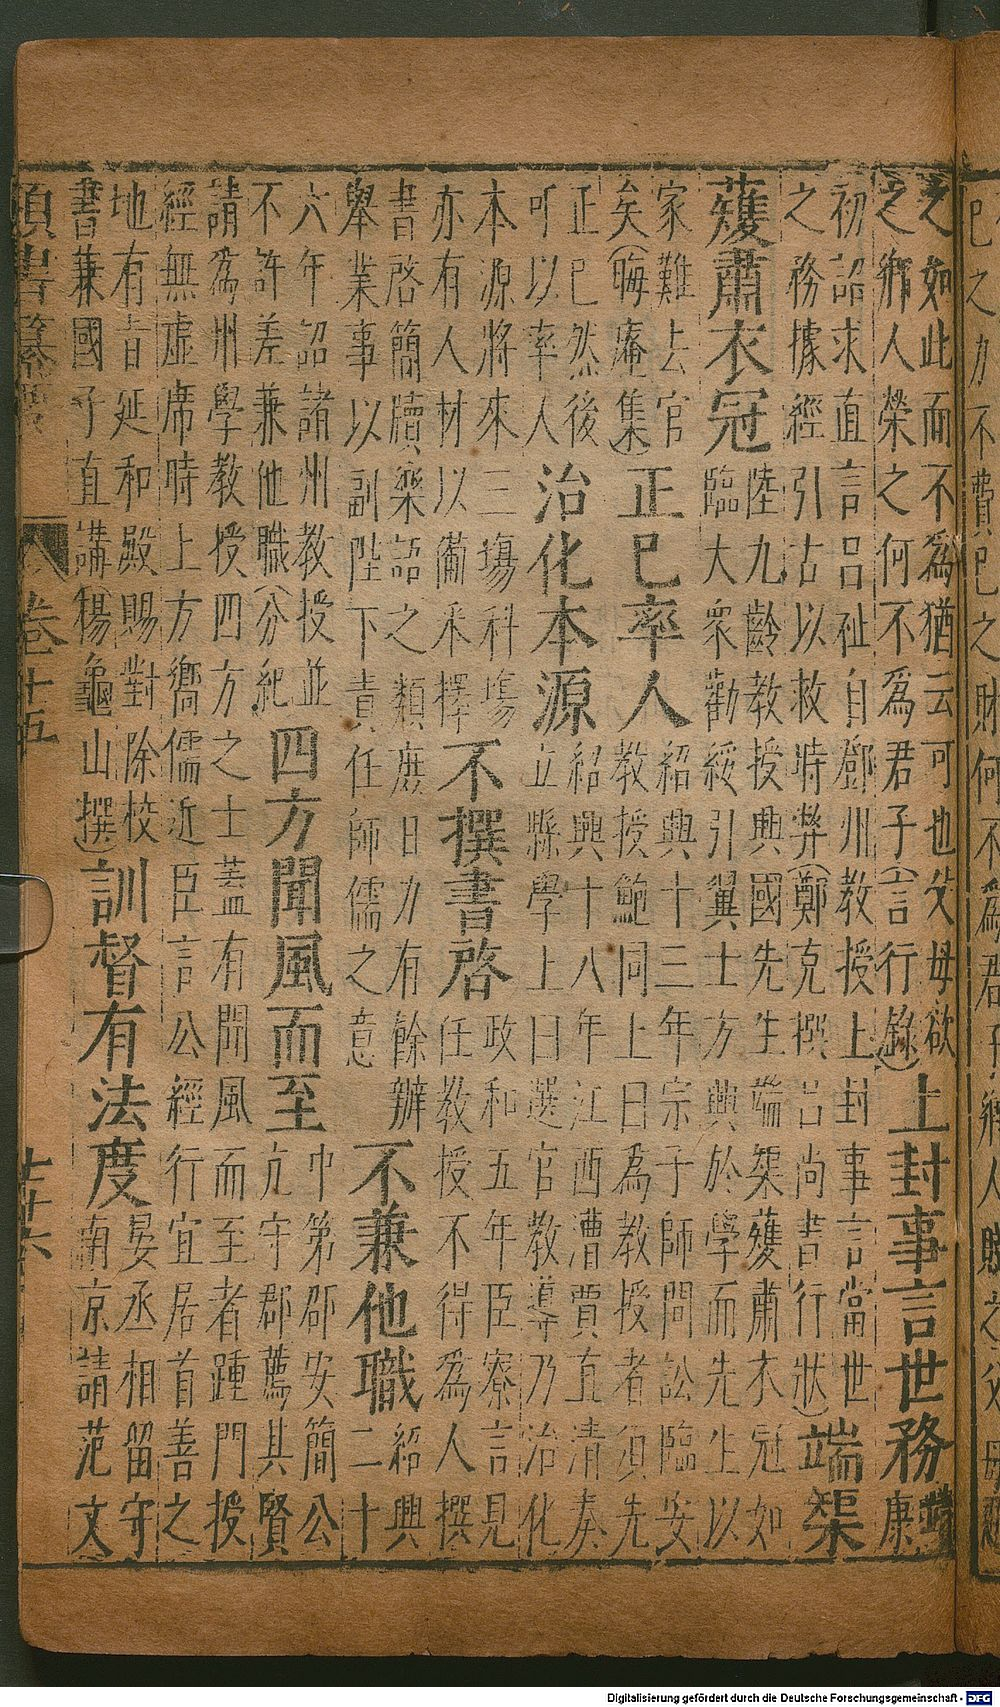 己之力不費己之財何不為君子鄉人賤之父母惡
之如此而不為猶云可也父母欲
之鄉人榮之何不為君子(言行錄)
上封事言世務
靖
康
初詔求直言呂祉自鄧州教授上封事言當世
之務據經引古以救時弊(鄭克撰呂尚書行狀)
端榘
矱肅衣冠
陸九齡教授興國先生端榘矱肅衣冠如
臨大衆勸綏引翼士方興於學而先生以
家難去官
矣(晦庵集)
正已率人
紹興十三年宗子師問訟臨安
教授鮑同上曰為教授者須先
正已然後
可以率人
治化本源
紹興十八年江西漕賈直清奏
立縣學上曰選官教導乃治化
本源將來三塲科塲
亦有人材以備采擇
不撰書啓
政和五年臣寮言見
任教授不得為人撰
書啓簡牘樂語之類庶日力有餘辦
舉業事以副陛下責任師儒之意
不兼他職
紹興
二十
六年詔諸州教授並
不許差兼他職(分紀)
四方聞風而至
中第邵安簡公
亢守郡薦其賢
請為州學教授四方之士蓋有聞風而至者踵門授
經無虛席時上方嚮儒近臣言公經行宜居首善之
地有旨延和殿賜對除校
書兼國子直講(楊龜山撰)
訓督有法度
晏丞相留守
南京請范文
卷十五
廿六
Digitalisierung gefördert durch die Deutsche Forschungsgemeinschaft - DFG